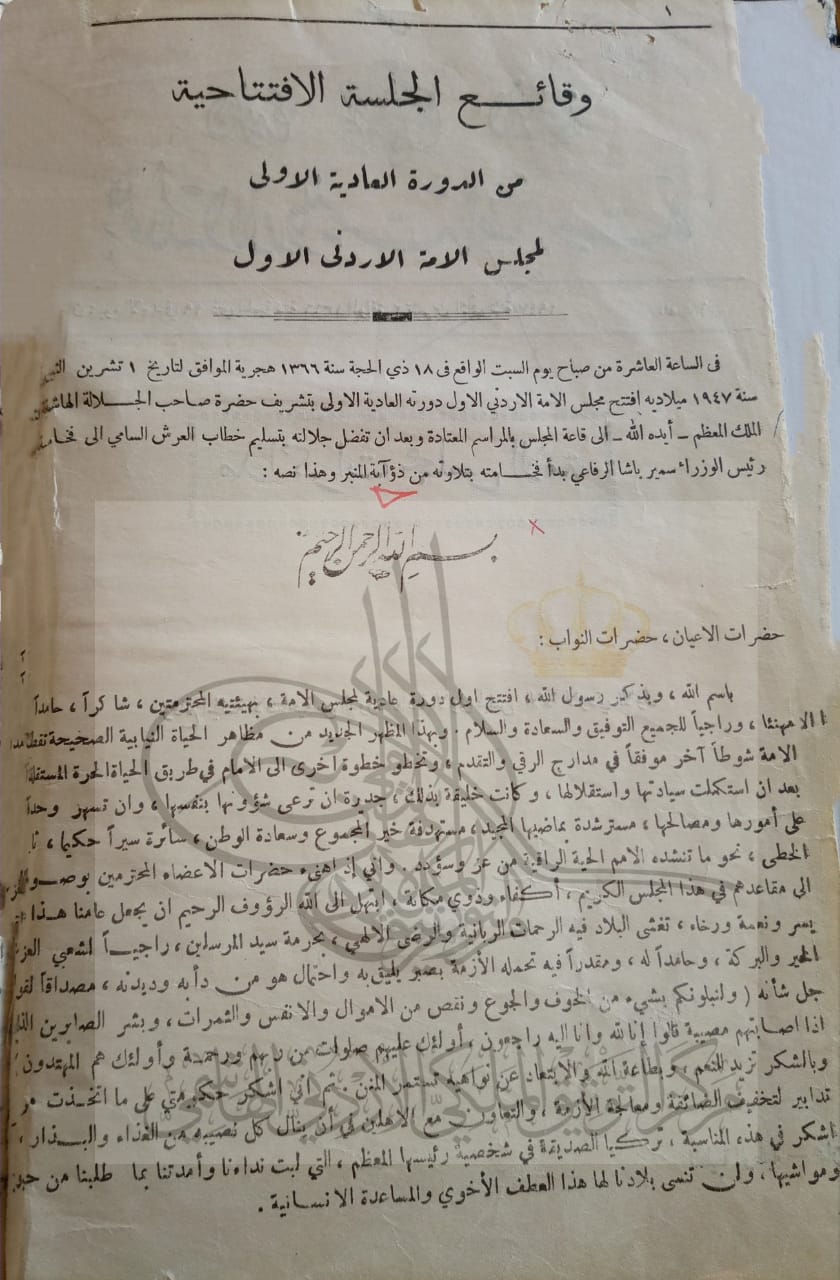 ١
وقائع الجلسة الافتتاحية
من الدورة العادية الاولى
لمجلس الامة الاردني الاول
فى الساعة العاشرة من صباح يوم السبت الواقع فى ١٨ ذي الحجة سنة ١٣٦٦ هجرية الموافق لتاريخ ١ تشرين
سنة ١٩٤٧ ميلاديه افتتح مجلس الامة الاردني الاول دورته العادية الاولى بتشريف حضرة صاحب الجلالة
الملك المعظم ـ أيده الله ـ الى قاعة المجلس بالمراسم المعتادة وبعد ان تفضل جلالته بتسليم خطاب العرش السامي الى
رئيس الوزراء سمير باشا الرفاعي بدأ فخامته بتلاوته من ذؤآبة المنبر وهذا نصه :
بسم الله الرحمن الرحيم
حضرات الاعيان ، حضرات النواب :
باسم الله ، وبذكر رسول الله ، افتتح اول دورة عادية لمجلس الامة ، بهيئتيه المحترمتين ، شاكراً ، حامداً
، وراجياً للجميع التوفيق والسعادة والسلام . وبهذا المظهر الجديد من مظاهر الحياة النيابية الصحيحة
الامة شوطاً آخر موفقاً في مدارج الرقي والتقدم ، وتخطو خطوة اخرى الى الامام في طريق الحياة الحرة المستقلة
بعد ان استكملت سيادتها واستقلالها ، وكانت خليقة بذلك ، جديرة ان ترعى شؤونها بنفسها ، وان تسهر
على أمورها ومصالحها ، مسترشدة بماضيها المجيد ، مستهدفة خير المجموع وسعادة الوطن ، سائرة سيراً حكيما ،
الخطى ، نحو ما تنشده الامم الحية الراقية من عز وسؤدد . واني إذ اهنىء حضرات الاعضاء المحترمين
الى مقاعدهم في هذا المجلس الكريم ، أكفاء وذوي مكانة ، ابتهل الى الله الرؤوف الرحيم ان يجعل عامنا هذا
يسر ونعمة ورخاء ، تغشى البلاد فيه الرحمات الربانية والرضى الالهي ، بحرمة سيد المرسلين ، راجياً لشعبي
الخير والبركة ، وحامداً له ، ومقدراً فيه تحمله الأزمة بصبر يليق به واحتمال هو من دأبه وديدنه ، مصداقاً
جل شأنه ( ولنبلونكم بشيء من الخوف والجوع ونقص من الاموال والانفس والثمرات ، وبشر الصابرين
اذا اصابتهم مصيبة قالوا إنا لله وانا اليه راجعون ، أولئك عليهم صلوات من ربهم ورحمة وأولئك هم المهتدون
وبالشكر تزيد النعم ، وبطاعة الله والابتعاد عن نواهيه تستمر المنن . ثم اني اشكر حكومتي على ما اتخذت من
تدابير لتخفيف الضائقة ومعالجة الأزمة ، والتعاون مع الاهلين في أن ينال كل نصيبه من الغذاء والبذار ،
اشكر في هذه المناسبة ، تركيا الصديقة في شخصية رئيسها المعظم ، التي لبت نداءنا وأمدتنا بما طلبنا من
ومواشيها ، ولن تنسى بلادنا لها هذا العطف الأخوي والمساعدة الانسانية .
مركز التوثيق الملكي الأردني الهاشمي